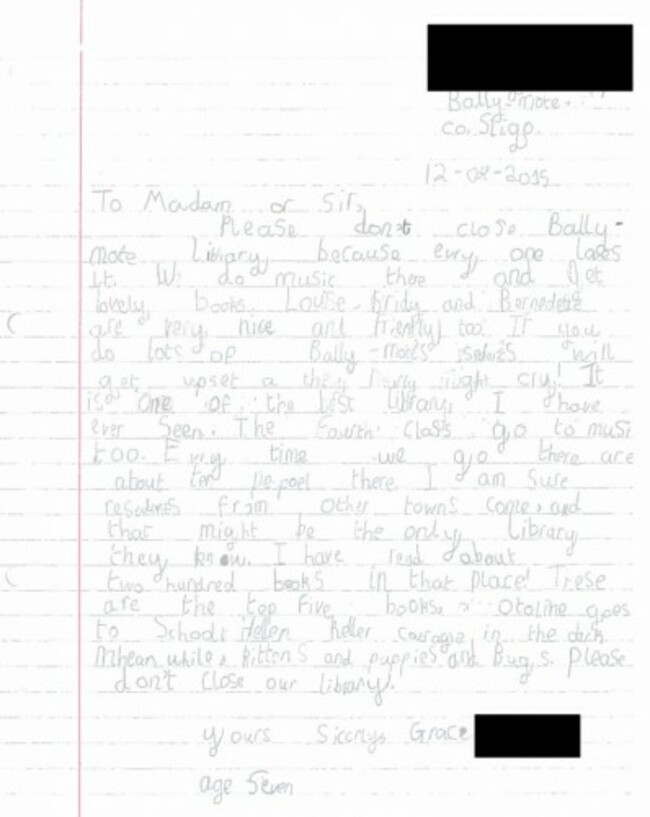 Bally-mote.
co. Sligo.
12-02-2015
To Madam or Sir,
Please don't close Bally-
mote Library, because evry one loves
it. We do music there and get
lovely books. Louise, Bridy and Bernedette
are very nice and friently too. If you
do lots of Bally-motes will
get upset a they might cry! It
is one of the best library I have
ever seen. The fourth class go to musi
too. Evry time we go there are
about ten pepoel there I am sure
from other towns come, and
that might be the only Library
they know. I have read about
two hundred books in that place! These
are the top five books: Ottoline goes
to School: Hellen Keller courage in the dark
Mhean while, kittens and puppies and Bugs. Please
don't close our library.
yours Grace
age Seven